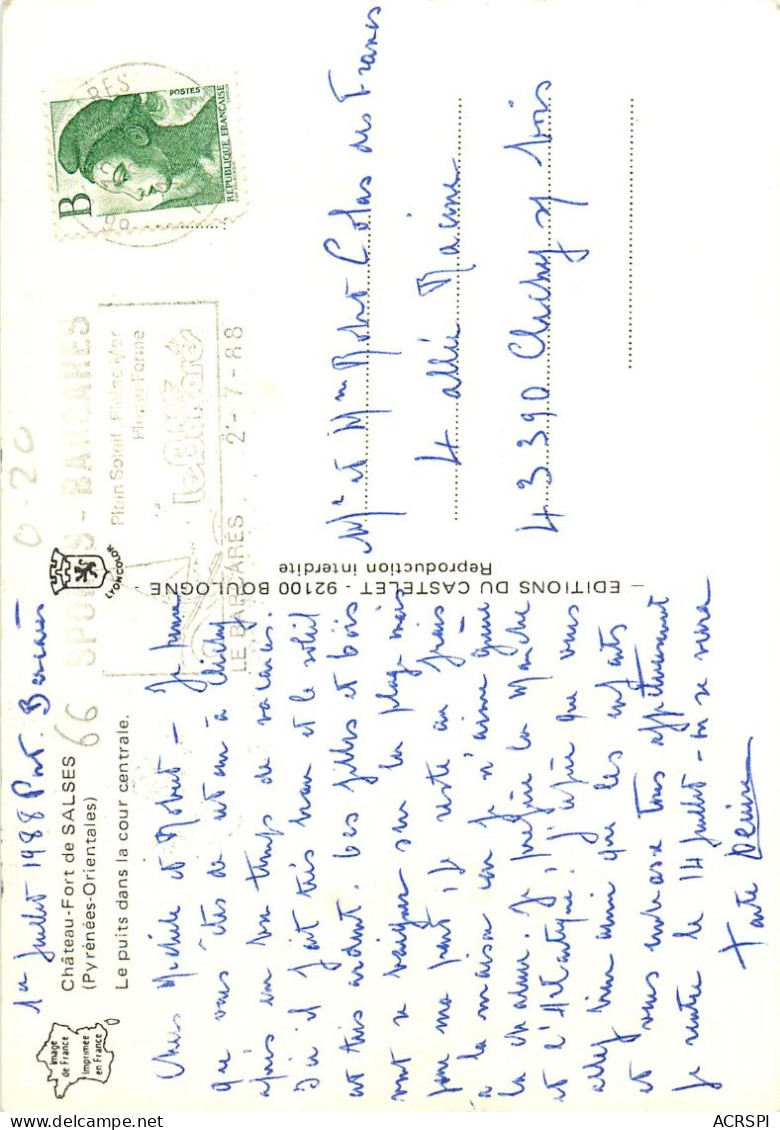 1er Juillet 1988 Port. Barcarès
Château-Fort de SALSES
(Pyrénées-Orientales)
66
Le puits dans la cour centrale.
Image
de France
Imprimée
en France
LYONCOLOR
Chers Michèle et Robert – Je pense
que vous êtes de retour à Clichy
après un bon temps de vacances.
Ici il fait très beau et le soleil
est très ardent. Les filles et
vont se baigner sur la plage mais
pour ma part, je reste au frais
à la maison car je n'aime guère
la chaleur. Je préfère la Manche
et l'Atlantique. J'espère que vous
allez bien ainsi que les enfants
et vous embrasse tous affectueusement
Je rentre le 14 Juillet – on se verra
Tante Denise
— EDITIONS DU CASTELET - 92100 BOULOGNE
Reproduction interdite
0-20
B
POSTES
REPUBLIQUE FRANÇAISE
SPORTS - BARCARES
Plein Soleil, Pleine Mer
Pleine Forme
le Barcarès
LE BARCARES 2-7-88
Mr et Mme Robert Colas des Francs
4 allée Racine
43390 Clichy s/ bois
ACRSPI